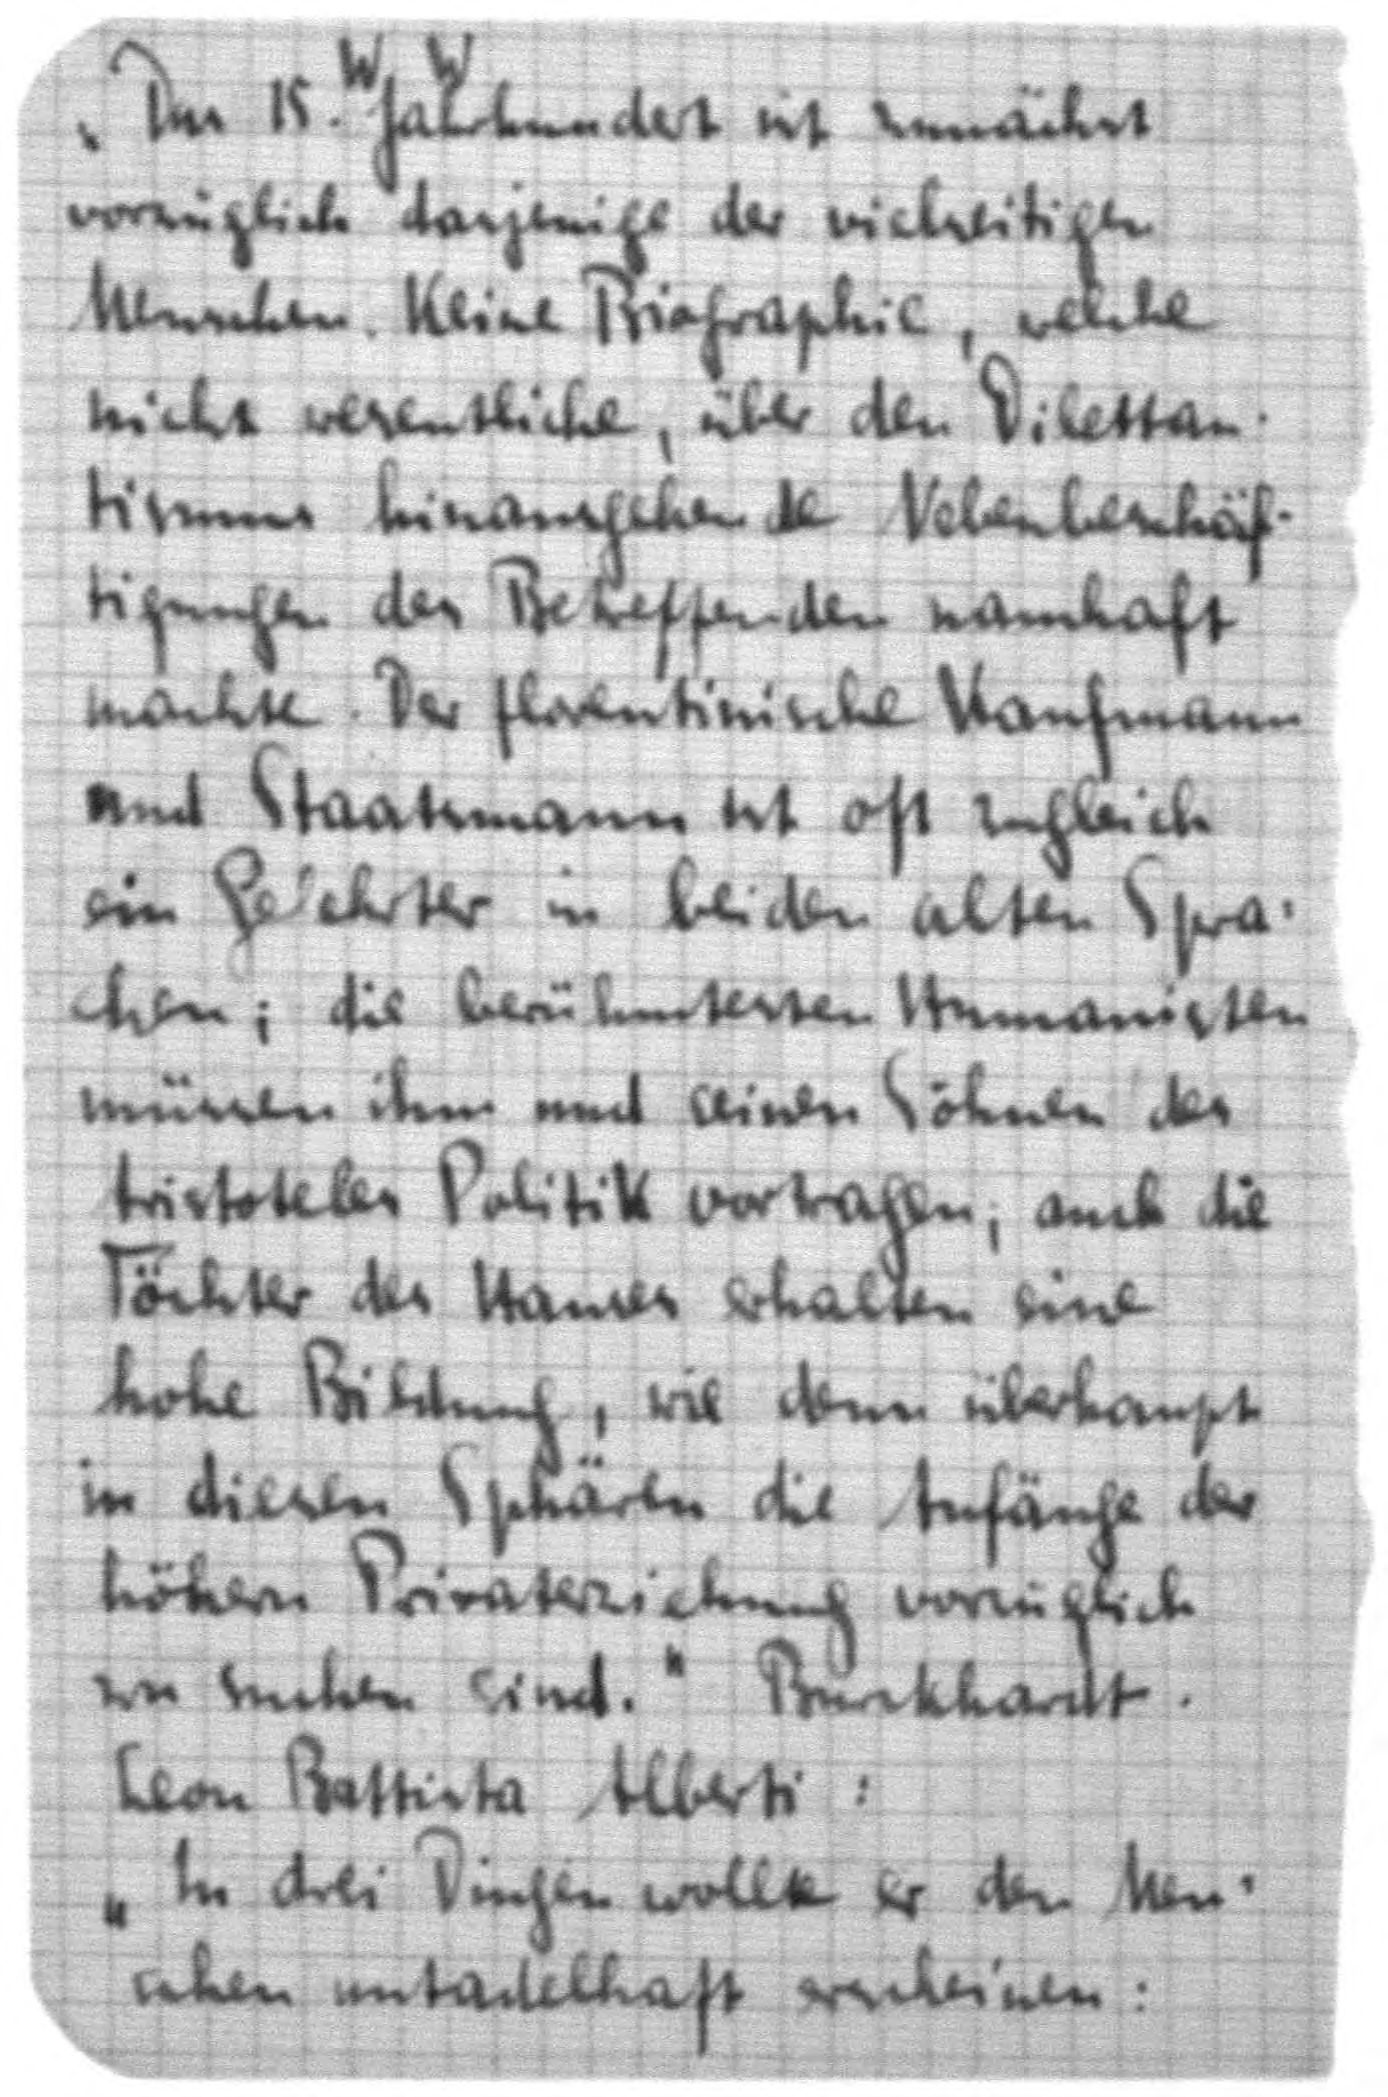 „Das 15. Jahrhundert ist zunächst
vorzüglich dasjenige der vielseitigen
Menschen. Keine Biographie, welche
nicht wesentliche, über den Dilettan-
tismus hinausgehende Nebenbeschäf-
tigungen des Betreffenden namhaft
machte. Der florentinische Kaufmann
und Staatsmann ist oft zugleich
ein Gelehrter in beiden alten Spra-
chen; die berühmtesten Humanisten
müssen ihm und seinen Söhnen des
Aristoteles Politik vortragen; auch die
Töchter des Hauses erhalten eine
hohe Bildung, wie denn überhaupt
in diesen Sphären die Anfänge der
höhern Privaterziehung vorzüglich
zu suchen sind." Burckhardt.
Leon Battista Alberti:
„In drei Dingen wollte er den Men-
schen untadelhaft erscheinen: